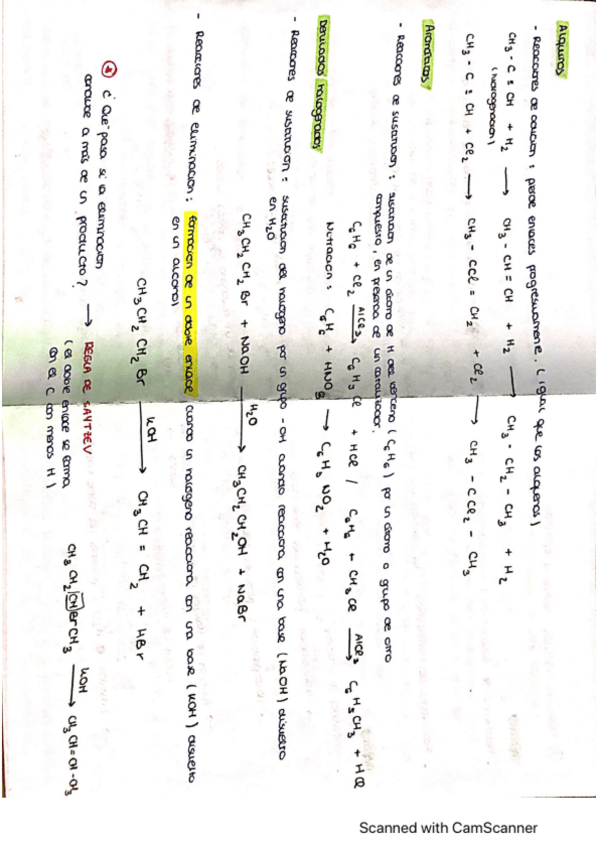 Alquinos
- Reacciones de adición: pierde enlaces progresivamente. (igual que los alquenos)
CH3 - C ≡ CH + H2 → CH3 - CH = CH + H2 → CH3 - CH2 - CH3 + H2
(Halogenación)
CH3 - C ≡ CH + Cl2 → CH3 - CCl = CH2 + Cl2 → CH3 - CCl2 - CH3
Aromáticos:
- Reacciones de sustitución: sustitución de un átomo de H del benceno (C6H6) por un átomo o grupo de otro
compuesto, en presencia de un catalizador.
C6H6 + Cl2 AlCl3 → C6H5Cl + HCl / C6H6 + CH3Cl AlCl3 → C6H5CH3 + HCl
Nitración: C6H6 + HNO3 → C6H5NO2 + H2O
Derivados halogenados
- Reacciones de sustitución: sustitución del halógeno por un grupo -OH cuando reacciona con una base (NaOH) disuelto
en H2O
CH3CH2CH2Br + NaOH H2O → CH3CH2CH2OH + NaBr
- Reacciones de eliminación: formación de un doble enlace cuando un halógeno reacciona con una base (KOH) disuelto
en un alcohol
CH3CH2CH2Br KOH → CH3CH = CH2 + HBr
* ¿Qué pasa si la eliminación
conduce a más de un producto? → REGLA DE SAYTZEV
(el doble enlace se forma
con el C con menos H)
CH3CH2CHBrCH3 KOH → CH3CH=CH-CH3
Scanned with CamScanner